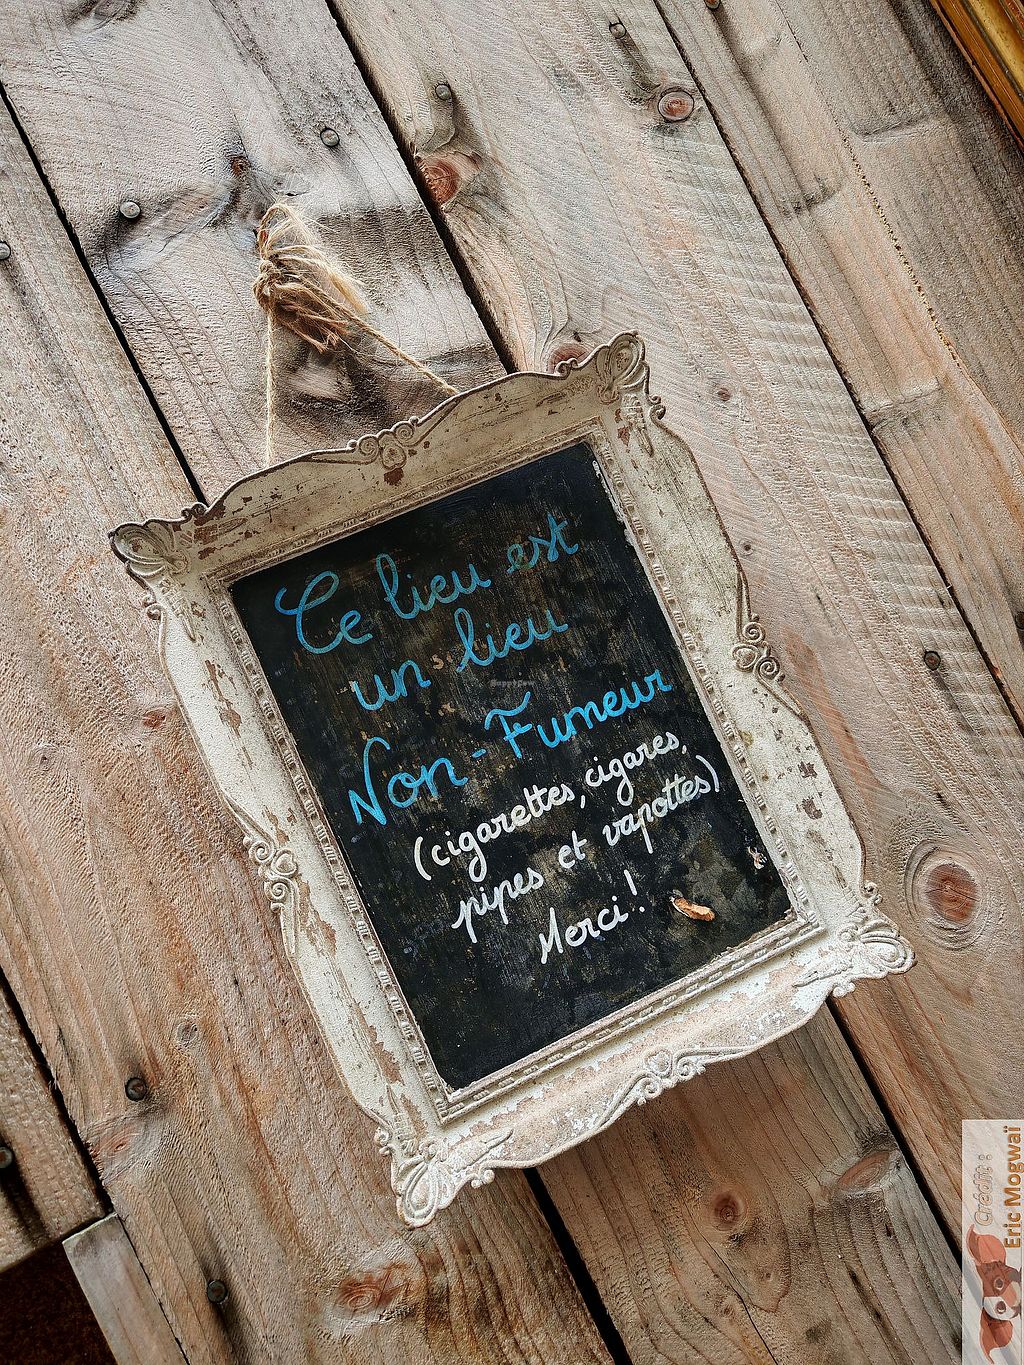 Ce lieu est
un lieu
Non-Fumeur
(cigarettes, cigares,
pipes et vapottes)
Merci!
HappyCow
Crédit :
Eric Mogwaï